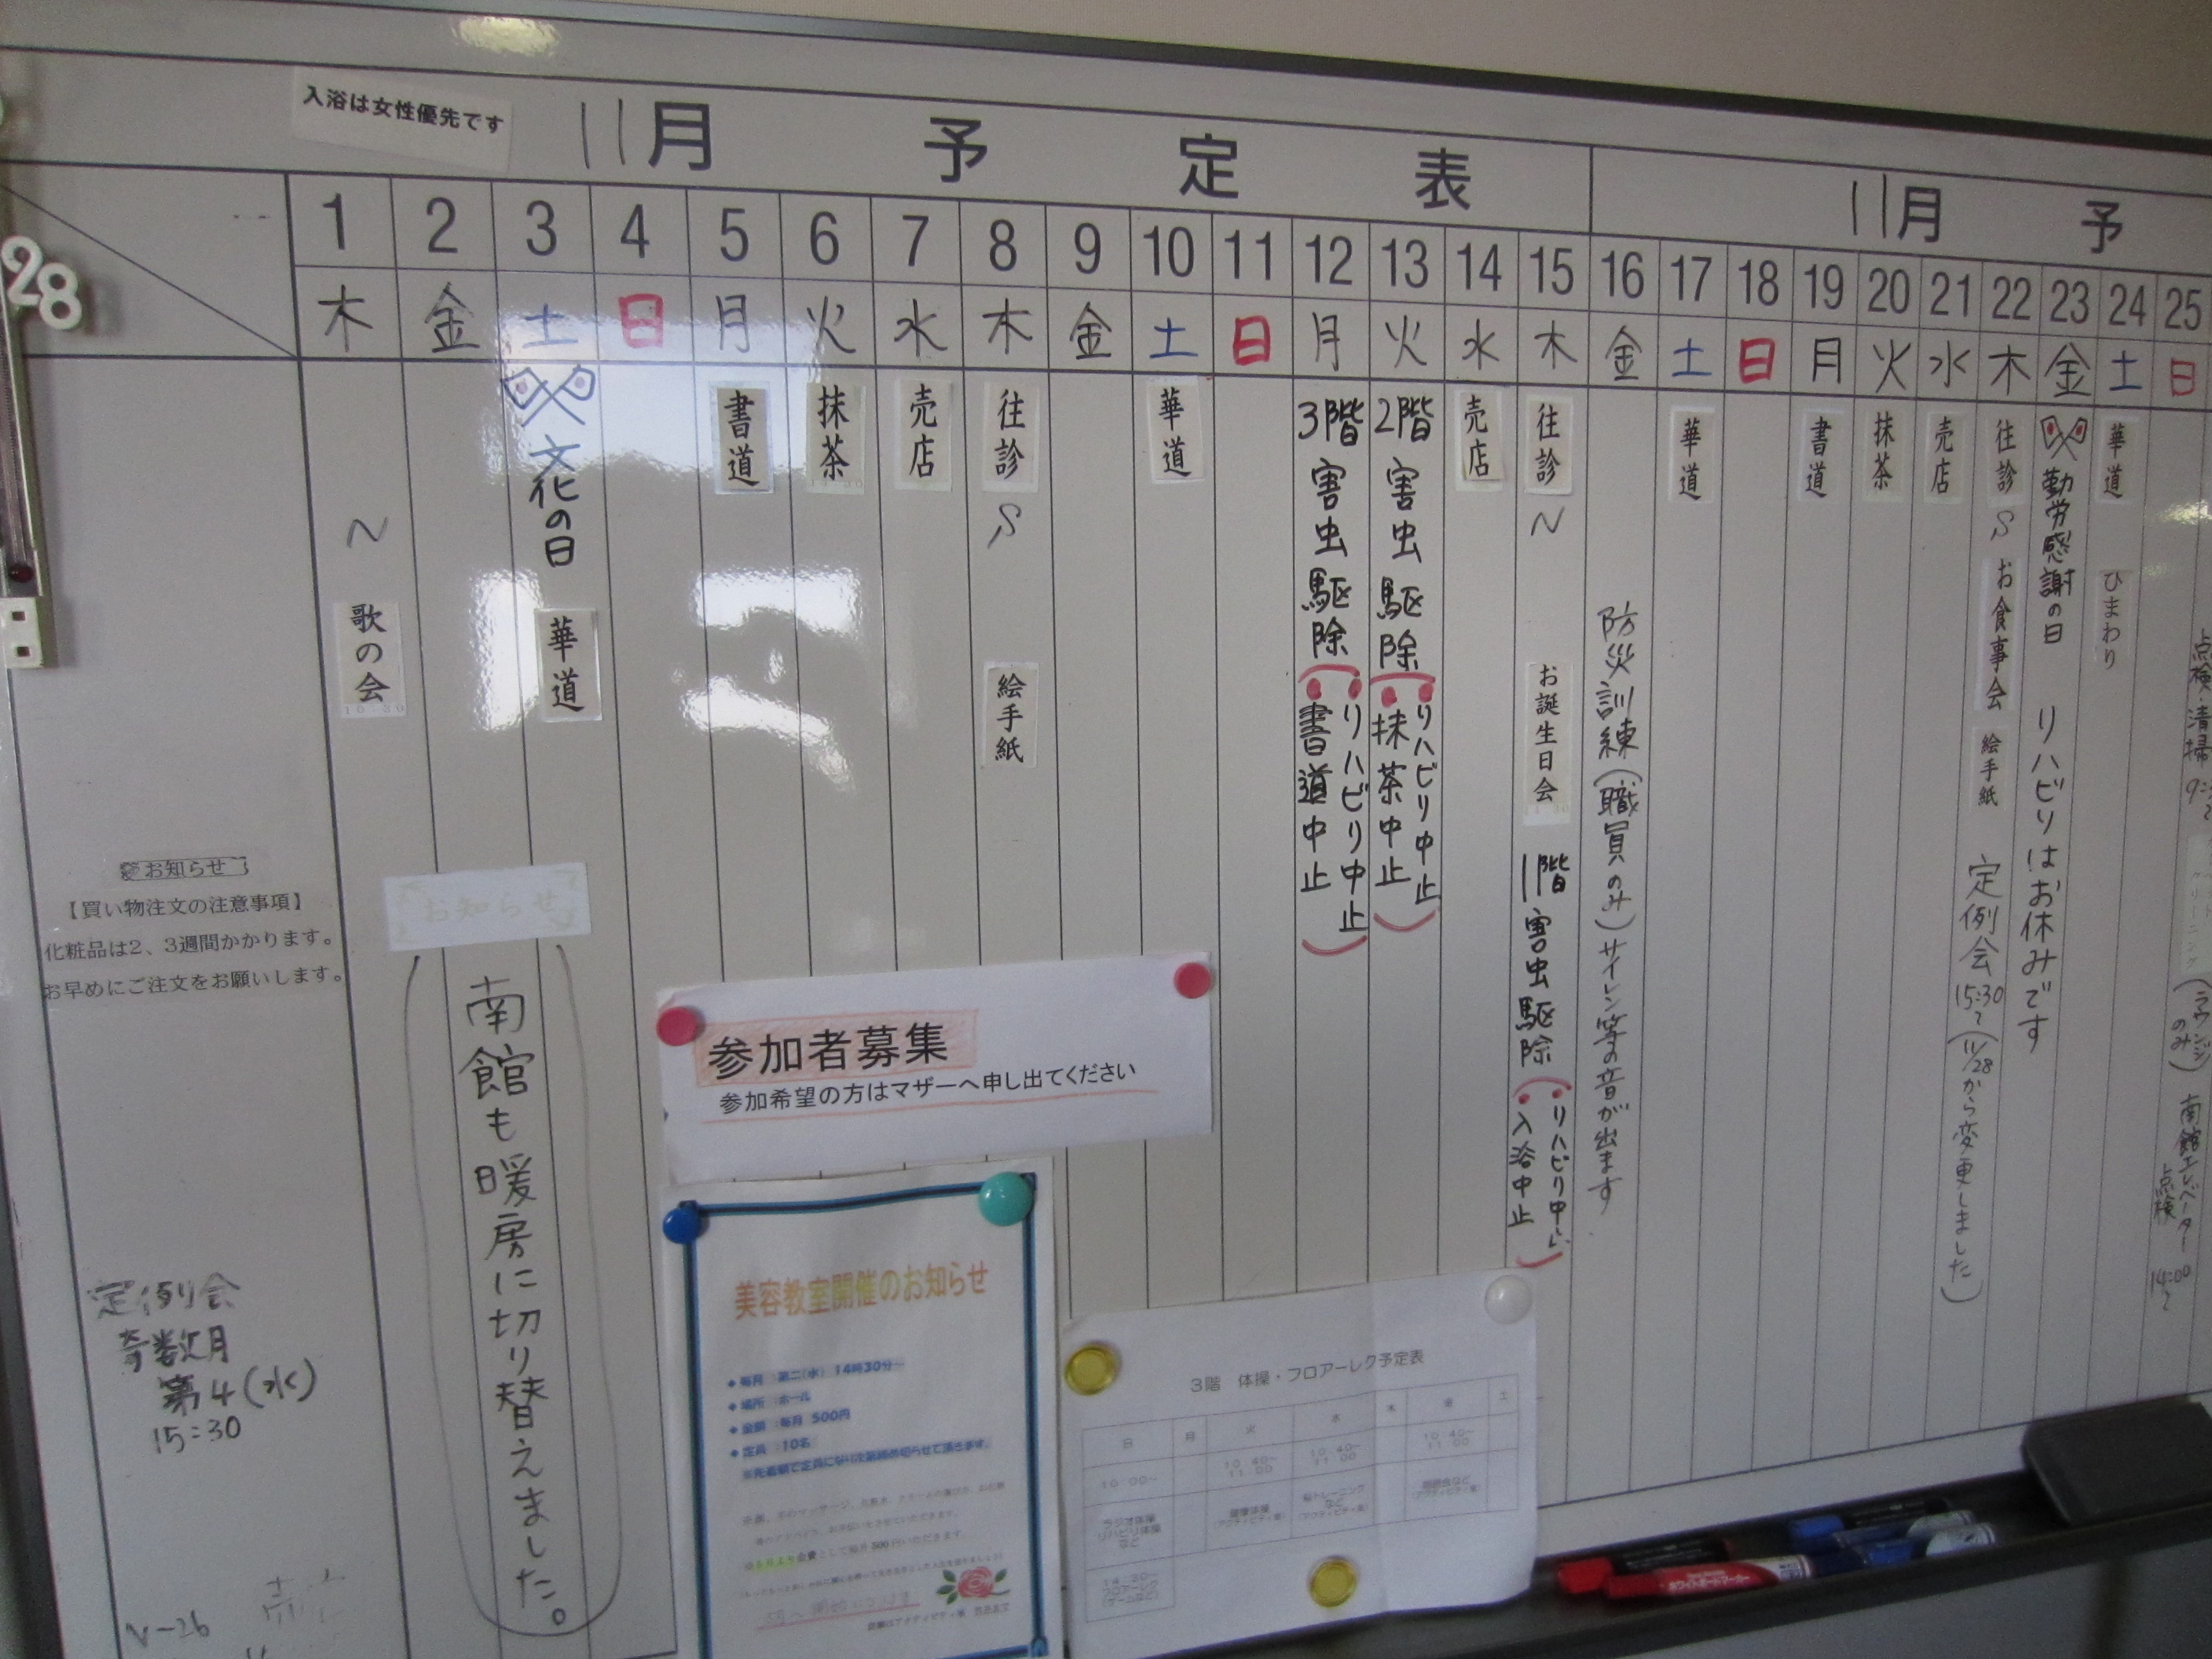 入浴は女性優先です
11月 予定表
11月 予
1 2 3 4 5 6 7 8 9 10 11 12 13 14 15 16 17 18 19 20 21 22 23 24 25
木 金 土 日 月 火 水 木 金 土 日 月 火 水 木 金 土 日 月 火 水 木 金 土 日
28
N
歌の会
文化の日
華道
書道
抹茶
売店
往診
S
絵手紙
華道
3階害虫駆除
(・リハビリ中止
・書道中止)
2階害虫駆除
(・リハビリ中止
・抹茶中止)
売店
往診
N
お誕生日会
1階害虫駆除
(・リハビリ中止
・入浴中止)
防災訓練(職員のみ)サイレン等の音が出ます
華道
書道
抹茶
売店
往診
S
お食事会
絵手紙
定例会
15:30~
(11/28から変更しました)
勤労感謝の日 リハビリはお休みです
華道
ひまわり
点検・清掃
(ラウンジのみ)
南館エレベーター点検
14:00~
お知らせ
【買い物注文の注意事項】
化粧品は2、3週間かかります。
お早めにご注文をお願いします。
お知らせ
南館も暖房に切り替えました。
定例会
奇数月
第4(水)
15:30
参加者募集
参加希望の方はマザーへ申し出てください
美容教室開催のお知らせ
◆毎月 :第二(水) 14時30分~
◆場所 :ホール
◆金額 :毎月 500円
◆定員 :10名
3階 体操・フロアーレク予定表
日 月 火 水 木 金 土
10:00~
10:40~11:00
10:40~11:00
10:40~11:00
ラジオ体操
リハビリ体操
など
N-26